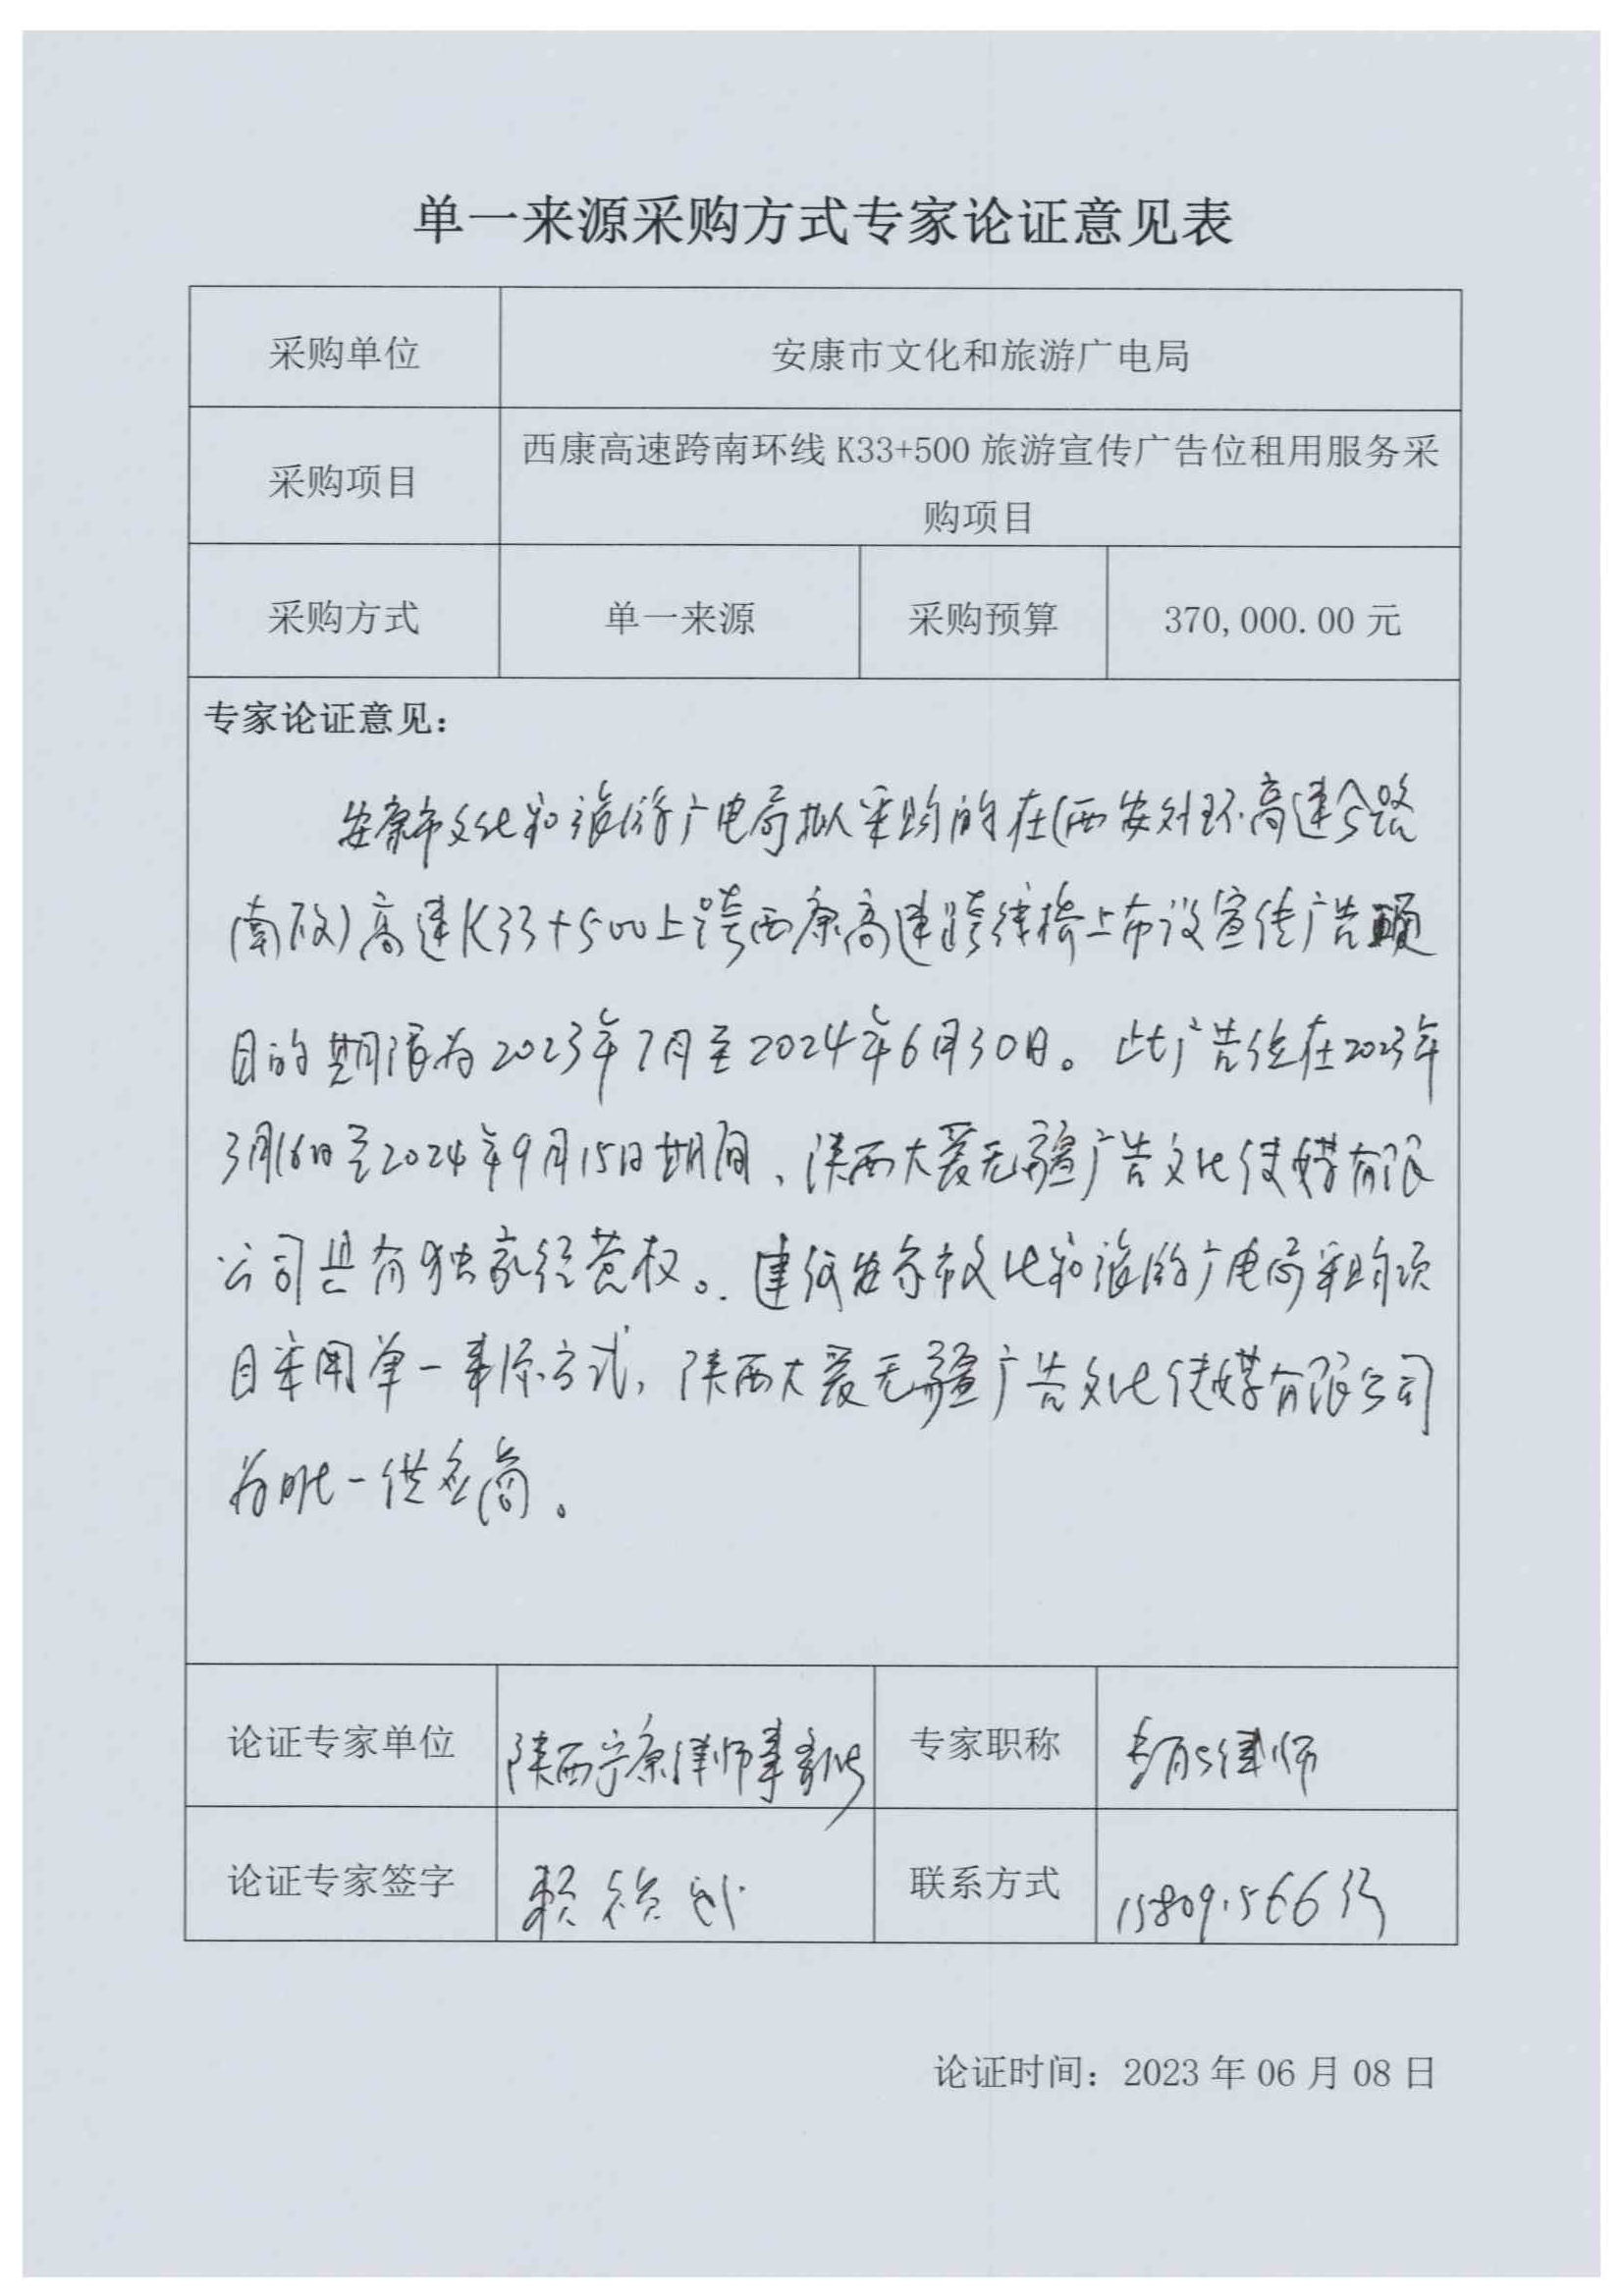 单一来源采购方式专家论证意见表
采购单位
安康市文化和旅游广电局
采购项目
西康高速跨南环线 K33+500 旅游宣传广告位租用服务采
购项目
采购方式
单一来源
采购预算
370,000.00 元
专家论证意见：
安康市文化和旅游广电局拟采购的在(西安外环高速公路
南段)高速K33+500上跨西康高速跨线桥上布设宣传广告项
目的期限为2023年7月至2024年6月30日。此广告位在2023年
3月16日至2024年9月15日期间、陕西大爱无疆广告文化传媒有限
公司具有独家经营权。建议安康市文化和旅游广电局采购项
目采用单一来源方式，陕西大爱无疆广告文化传媒有限公司
为唯一供应商。
论证专家单位
陕西宁康律师事务所
专家职称
律师
论证专家签字
赖
联系方式
论证时间：2023 年 06 月 08 日